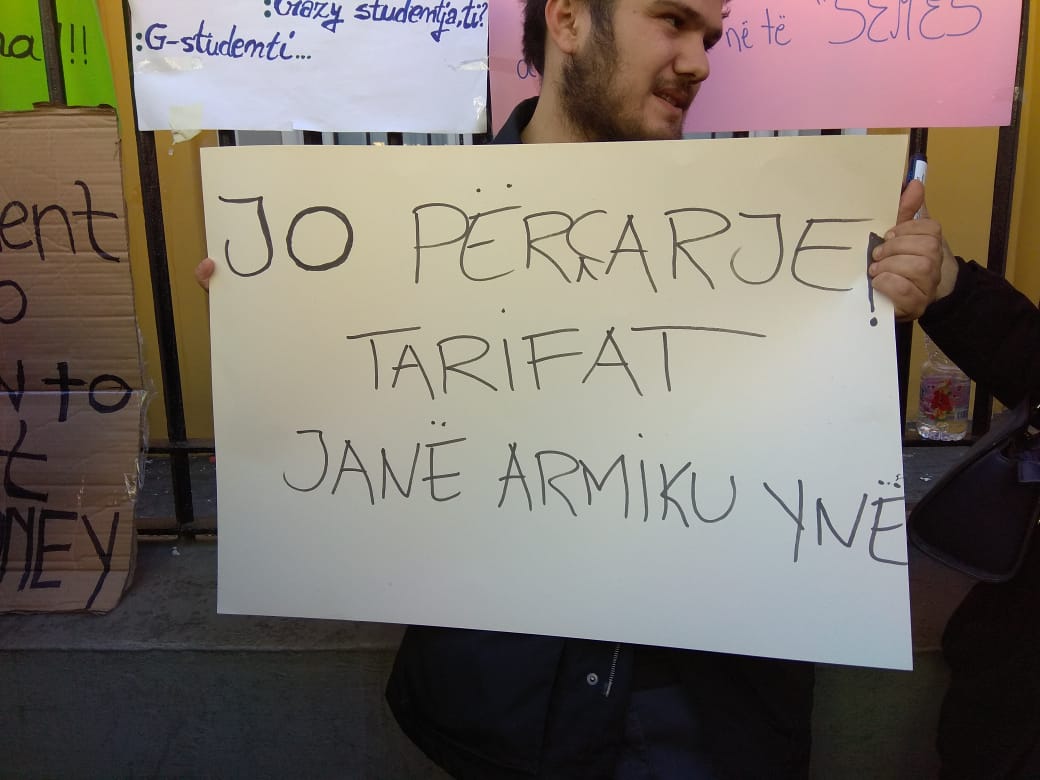 !!!
:Grazy studentja,ti?
:G-studenti...
në të "SEMES
ent
O
N to
t
NEY
JO PËRÇARJE!
TARIFAT
JANË ARMIKU YNË